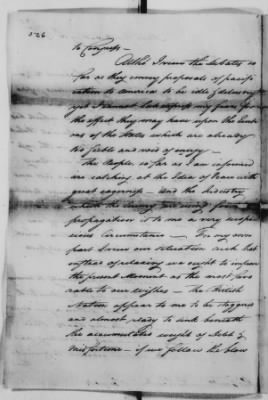 526
to Congress
Altho' I view the debates so
far as they convey proposals of pacifi
cation to America to be idle & delusory
yet I cannot but express my fears from
the effect they may have upon the
ons of the States which are already
too feeble and void of energy —
The People, so far as I am informed
are catching at the Idea of Peace with
great eagerness — and the Industry
which the
propagation is to me a very suspi
cious Circumstance — For my own
part I view our situation such that
instead of relaxing we ought to improve
the present Moment as the most favo
rable to our wishes — the British
Nation appear to me to be staggered
and almost ready to sink beneath
the accumulated weight of debt &
misfortune — if we follow the blow